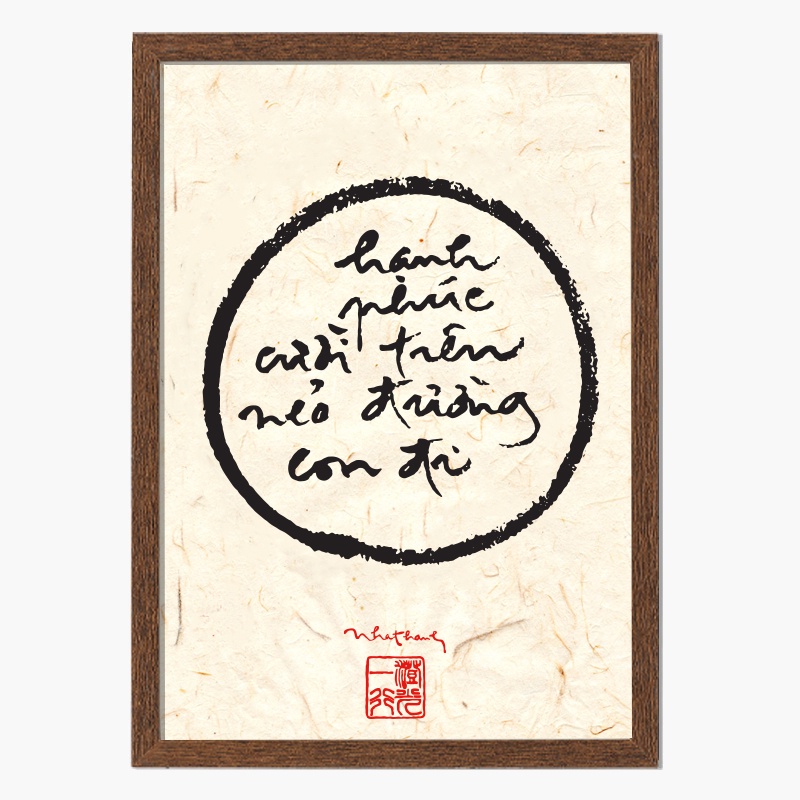 hạnh
phúc
cười trên
nẻo đường
con đi
Nhat hanh
澄光
一行